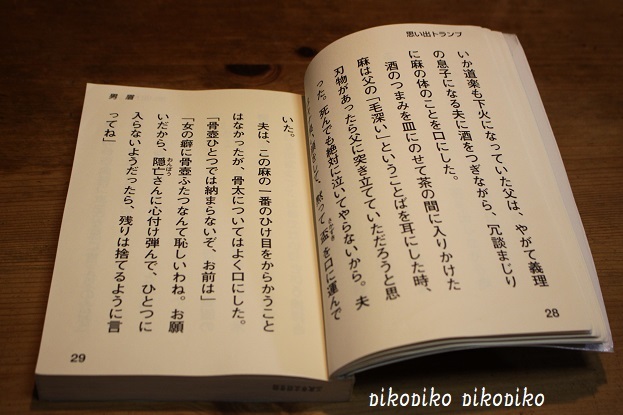 思い出トランプ
いか道楽も下火になっていた父は、やがて義理
の息子になる夫に酒をつぎながら、冗談まじり
に麻の体のことを口にした。
酒のつまみを皿にのせて茶の間に入りかけた
麻は父の「毛深い」ということばを耳にした時、
刃物があったら父に突き立てていただろうと思
った。死んでも絶対に泣いてやらないから。夫
黙って盃を口に運んで
さかずき
28
男眉
いた。
夫は、この麻の一番のひけ目をからかうこと
はなかったが、骨太についてはよく口にした。
「骨壺ひとつでは納まらないぞ、お前は」
「女の癖に骨壺ふたつなんて恥しいわね。お願
いだから、隠亡さんに心付け弾んで、ひとつに
おんぼう
入らないようだったら、残りは捨てるように言
ってね」
29
pikopiko pikopiko